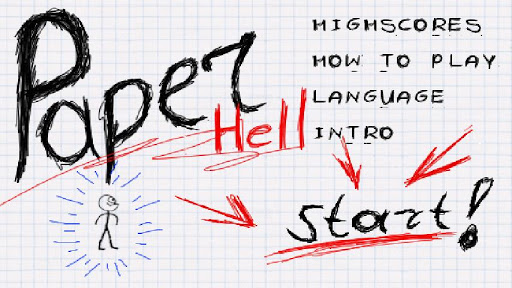 Paper
Hell
HIGHSCORES
HOW TO PLAY
LANGUAGE
INTRO
start!